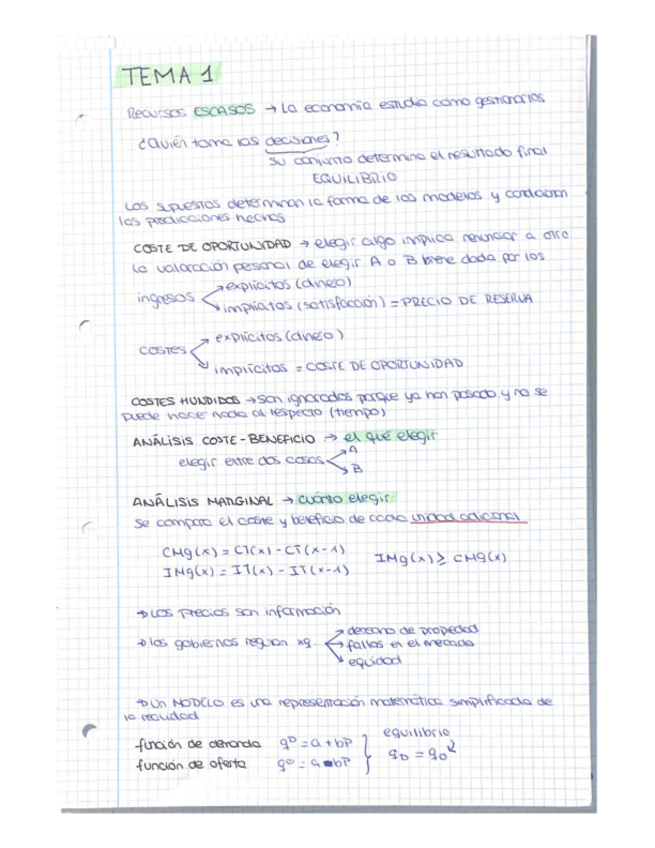 TEMA 1
Recursos ESCASOS → La economía estudia como gestionarlos
¿Quién toma las decisiones?
Su conjunto determina el resultado final
EQUILIBRIO
Los supuestos determinan la forma de los modelos y condicionan
las predicciones hechas
COSTE DE OPORTUNIDAD → elegir algo implica renunciar a otro
La valoración personal de elegir A o B viene dada por los
ingresos → explícitos (dinero)
→ implícitos (satisfacción) = PRECIO DE RESERVA
COSTES → explícitos (dinero)
→ implícitos = COSTE DE OPORTUNIDAD
COSTES HUNDIDOS → son ignorados porque ya han pasado y no se
puede hacer nada al respecto (tiempo)
ANÁLISIS COSTE-BENEFICIO → el qué elegir
elegir entre dos cosas → A
→ B
ANÁLISIS MARGINAL → cuánto elegir
Se compara el coste y beneficio de cada unidad adicional
CMg(x) = CT(x) - CT(x-1)
IMg(x) ≥ CMg(x)
IMg(x) = IT(x) - IT(x-1)
→ Los precios son información
→ los gobiernos regulan xq → derecho de propiedad
→ fallos en el mercado
→ equidad
→ Un MODELO es una representación matemática simplificada de
la realidad
función de demanda q^D = a + bP } equilibrio
función de oferta q^O = a bP } q_D = q_O